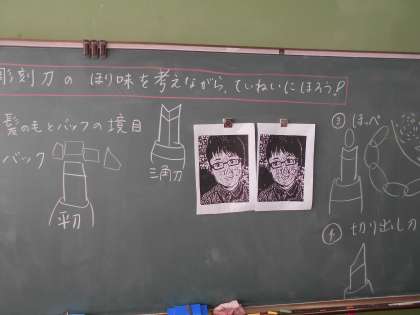 彫刻刀のほり味を考えながら、ていねいにほろう!
髪のもとバックの境目
バック
平刀
三角刀
③ほっぺ
④切り出し刀